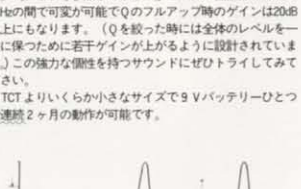 Hzの間で可変が可能でQのフルアップ時のゲインは20dB
上にもなります。(Qを絞った時には全体のレベルを一
に保つために若干ゲインが上がるように設計されていま
。)この強力な個性を持つサウンドにぜひトライしてみて
さい。
TCTよりいくらか小さなサイズで9Vバッテリーひとつ
連続2ヶ月の動作が可能です。